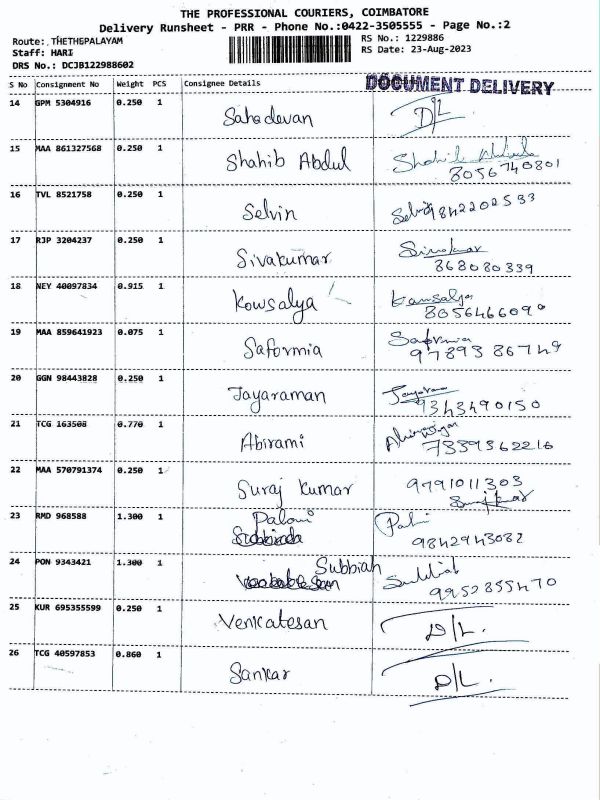 THE PROFESSIONAL COURIERS, COIMBATORE
Delivery Runsheet - PRR - Phone No.:0422-3505555 - Page No.:2
Route: THETHEPALAYAM RS No.: 1229886
Staff: HARI RS Date: 23-Aug-2023
DRS No.: DCJB122988602
S No Consignment No Weight PCS Consignee Details DOCUMENT DELIVERY
14 GPM 5304916 0.250 1 Sahadevan D/L
15 MAA 861327568 0.250 1 Shahib Abdul
8056740801
16 TVL 8521758 0.250 1 Selvin Selvin 9842202533
17 RJP 3204237 0.250 1 Sivakumar Sivakumar
868080339
18 NEY 40097834 0.915 1 Kowsalya Kowsalya
8056466090
19 MAA 859641923 0.075 1 Saformia Saformia
9789386749
20 GGN 98443828 0.250 1 Jayaraman
9343490150
21 TCG 163508 0.770 1 Abirami
7339562216
22 MAA 570791374 0.250 1 Suraj Kumar 9791011303
23 RMD 968588 1.300 1 Palani Palani
9842943082
24 PON 9343421 1.300 1 Subbiah Subbiah
9952855470
25 KUR 695355599 0.250 1 Venkatesan D/L.
26 TCG 40597853 0.860 1 Sankar D/L.